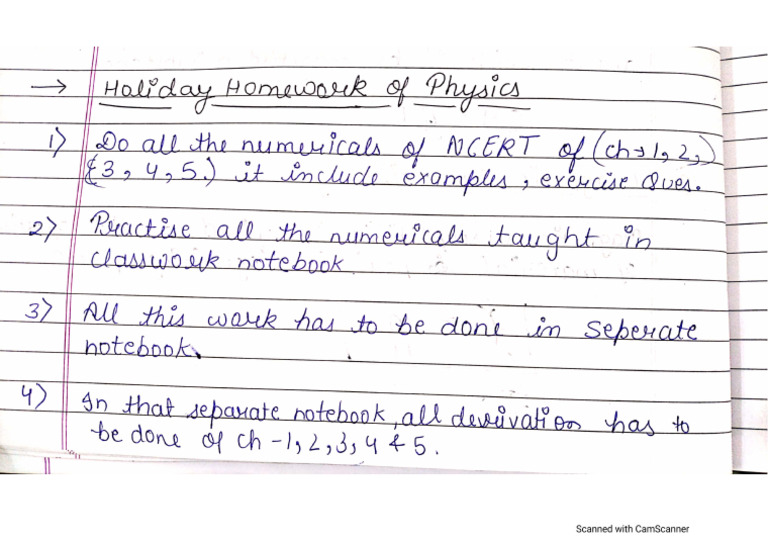 → Holiday Homework of Physics
1) Do all the numericals of NCERT of (ch→1, 2,)
{3, 4, 5.) it include examples, exercise Ques.
2) Practise all the numericals taught in
classwork notebook
3) All this work has to be done in seperate
notebook.
4) In that separate notebook, all derivation has to
be done of ch -1, 2, 3, 4 & 5.
Scanned with CamScanner